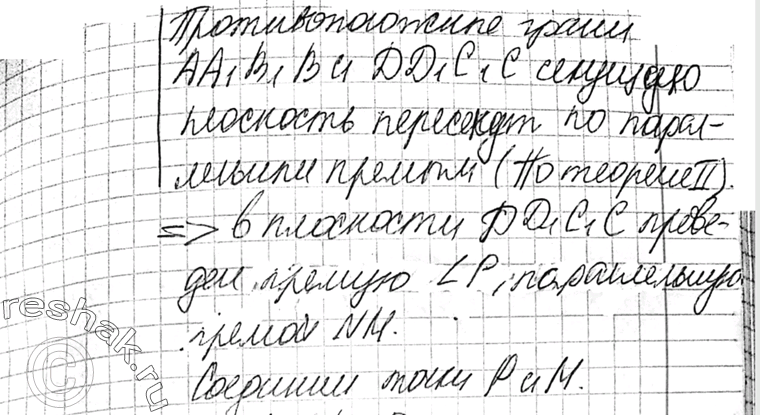 Противоположные грани
AA₁B₁B и DD₁C₁C секущую
плоскость пересекут по парал-
лельным прямым (По теореме II).
=> в плоскости DD₁C₁C прове-
дем прямую LP, параллельную
прямой NM.
Соединим точки P и M.
reshak.ru
©